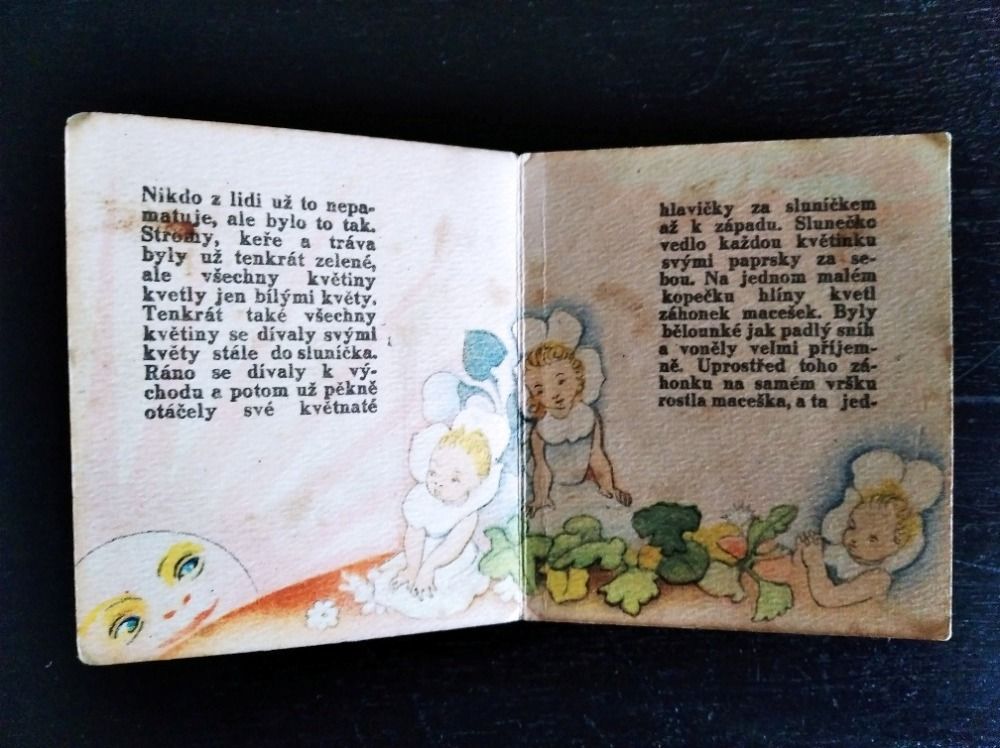 Nikdo z lidi už to nepa-
matuje, ale bylo to tak.
Stromy, keře a tráva
byly už tenkrát zelené,
ale všechny květiny
kvetly jen bílými květy.
Tenkrát také všechny
květiny se dívaly svými
květy stále do sluníčka.
Ráno se dívaly k vý-
chodu a potom už pěkně
otáčely své květnaté
hlavičky za sluníčkem
až k západu. Slunečko
vedlo každou květinku
svými paprsky za se-
bou. Na jednom malém
kopečku hlíny kvetl
záhonek macešek. Byly
bělounké jak padlý sníh
a voněly velmi příjem-
ně. Uprostřed toho zá-
honku na samém vršku
rostla maceška, a ta jed-